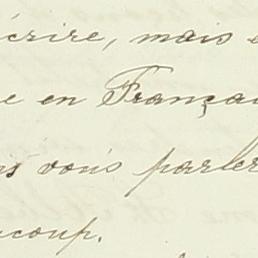 écrire, mais
e en Françai
vous parler
ucoup.